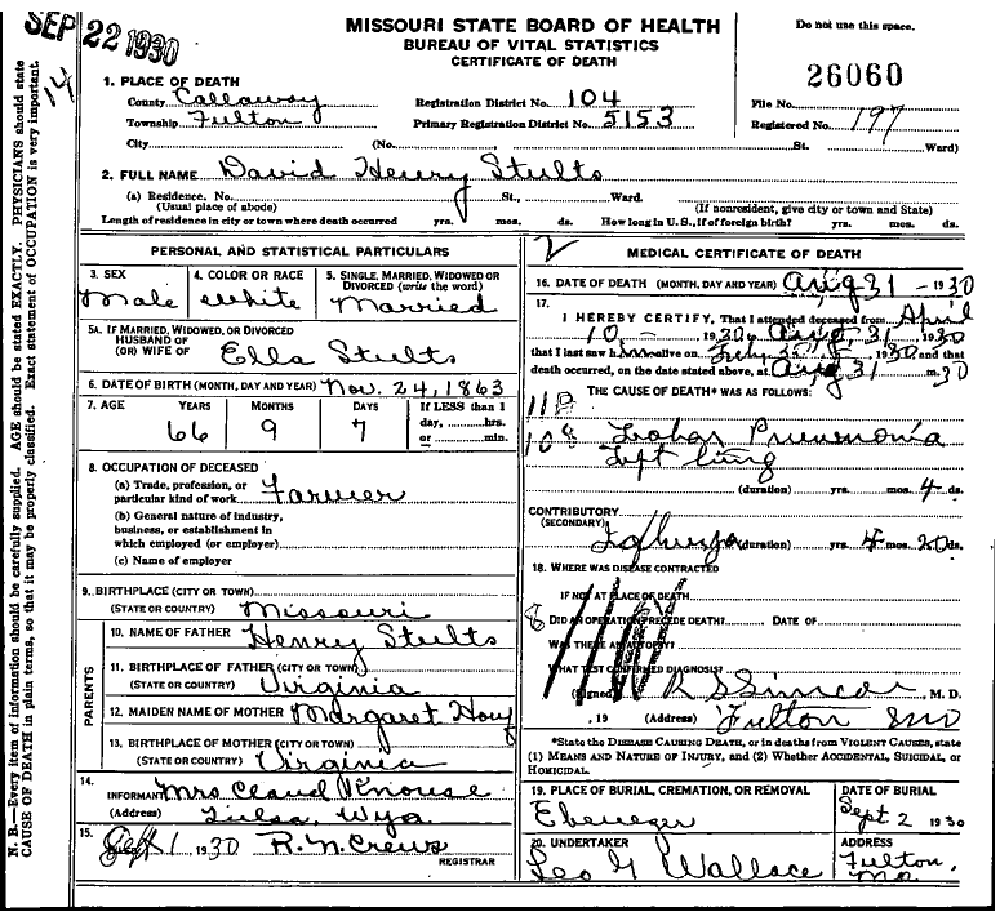 SEP 22 1930
14
MISSOURI STATE BOARD OF HEALTH
BUREAU OF VITAL STATISTICS
CERTIFICATE OF DEATH
Do not use this space.
26060
1. PLACE OF DEATH
County Callaway Registration District No. 104 File No.
Township Fulton Primary Registration District No. 5153 Registered No. 197
City (No. St. Ward)
2. FULL NAME David Henry Stults
(a) Residence. No. St., Ward.
(Usual place of abode) (If nonresident, give city or town and State)
Length of residence in city or town where death occurred yrs. mos. ds. How long in U.S., if of foreign birth? yrs. mos. ds.
PERSONAL AND STATISTICAL PARTICULARS
3. SEX 4. COLOR OR RACE 5. SINGLE, MARRIED, WIDOWED OR
DIVORCED (write the word)
Male White Married
5A. IF MARRIED, WIDOWED, OR DIVORCED
HUSBAND OF
(OR) WIFE OF Ella Stults
6. DATE OF BIRTH (MONTH, DAY AND YEAR) Nov. 24, 1863
7. AGE YEARS MONTHS DAYS If LESS than 1
day, hrs.
or min.
66 9 7
8. OCCUPATION OF DECEASED
(a) Trade, profession, or
particular kind of work Farmer
(b) General nature of industry,
business, or establishment in
which employed (or employer)
(c) Name of employer
9. BIRTHPLACE (CITY OR TOWN)
(STATE OR COUNTRY) Missouri
PARENTS
10. NAME OF FATHER Henry Stults
11. BIRTHPLACE OF FATHER (CITY OR TOWN)
(STATE OR COUNTRY) Virginia
12. MAIDEN NAME OF MOTHER Margaret
13. BIRTHPLACE OF MOTHER (CITY OR TOWN)
(STATE OR COUNTRY) Virginia
14.
INFORMANT Mrs Claud
(Address)
15.
Sept 1 1930 R. N. Crews
REGISTRAR
2
MEDICAL CERTIFICATE OF DEATH
16. DATE OF DEATH (MONTH, DAY AND YEAR) Aug 31 - 1930
17.
I HEREBY CERTIFY, That I attended deceased from April
10 1930, Aug 31 1930
that I last saw him alive on July 1930 and that
death occurred, on the date stated above, at Aug 31 m. 30
THE CAUSE OF DEATH* WAS AS FOLLOWS:
Lobar Pneumonia
Left lung
(duration) yrs. mos. 4 ds.
CONTRIBUTORY
(SECONDARY)
(duration) yrs. 4 mos. 20 ds.
18. WHERE WAS DISEASE CONTRACTED
IF NOT AT PLACE OF DEATH
DID AN OPERATION PRECEDE DEATH? DATE OF
WAS THERE AN AUTOPSY?
WHAT TEST CONFIRMED DIAGNOSIS?
(Signed) M. D.
, 19 (Address) Fulton Mo
*State the DISEASE CAUSING DEATH, or in deaths from VIOLENT CAUSES, state
(1) MEANS AND NATURE OF INJURY, and (2) Whether ACCIDENTAL, SUICIDAL, or
HOMICIDAL.
19. PLACE OF BURIAL, CREMATION, OR REMOVAL DATE OF BURIAL
Ebenezer Sept 2 1930
20. UNDERTAKER ADDRESS
Leo G Wallace Fulton
Mo.
N. B.—Every item of information should be carefully supplied. AGE should be stated EXACTLY. PHYSICIANS should state
CAUSE OF DEATH in plain terms, so that it may be properly classified. Exact statement of OCCUPATION is very important.